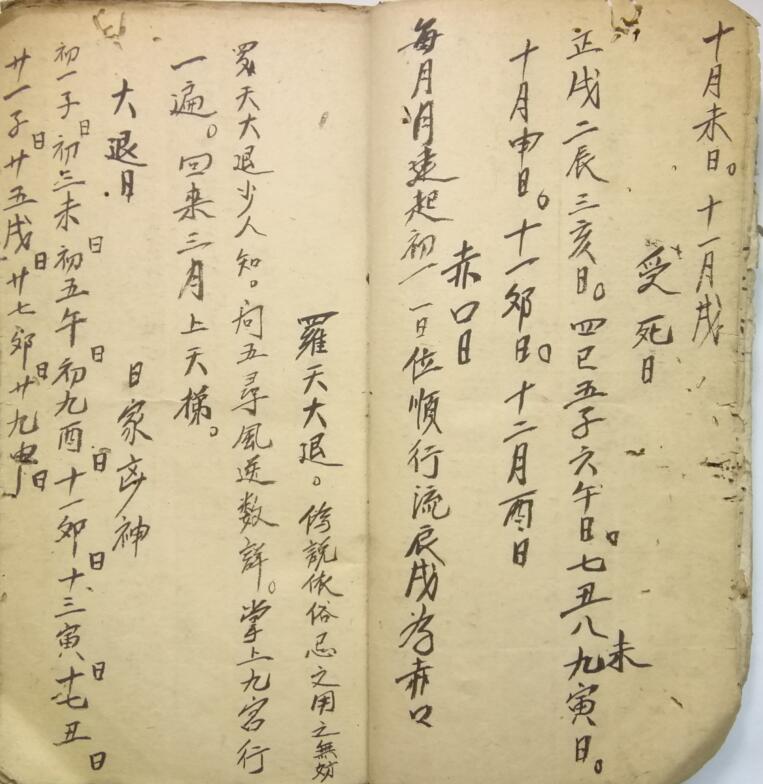 十月未日。十一月戌
受死日
正戌二辰三亥日。四巳五子六午日。七丑八未九寅日。
十月申日。十一卯日。十二月酉日
赤口日
每月月建起初一一日位順行流辰戌为赤口
羅天大退。傳說依俗忌之用之無妨
羅天大退少人知。向五尋風逆数詳。掌上九宮行
一遍。回来三月上天梯。
日家凶神
大退日
初一子日初三未日初五午日初九酉日十一卯日十三寅日十七丑日
廿一子日廿五戌日廿七卯日廿九申日